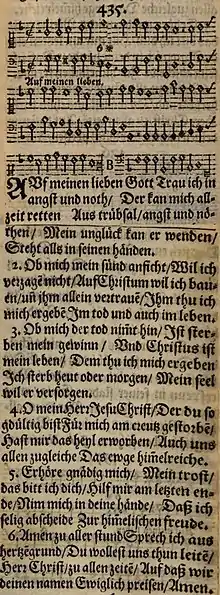 435.
6 *
Auf meinen lieben.
B
AVf meinen lieben Gott Trau ich in
angst vnd noth/ Der kan mich all-
zeit retten Aus trübsal/angst vnd nö-
then/ Mein unglück kan er wenden/
Steht alls in seinen händen.
2. Ob mich mein sünd anficht/Wil ich
verzagē nicht/ Auf Christum wil ich bau-
en/uñ jhm allein vertrauē/Jhm thu ich
mich ergebē Im tod und auch im leben.
3. Ob mich der tod nim̃t hin/ Ist ster-
ben mein gewinn/ Vnd Christus ist
mein leben/ Dem thu ich mich ergeben
Ich sterb heut oder morgen/ Mein seel
wil er versorgen.
4. O mein Herr Jesu Christ/ Der du so
gdültig bist Für mich am creutz gestorbē/
Hast mir das heyl erworben/ Auch uns
allen zugleiche Das ewge him̃elreiche.
5. Erhöre gnädig mich/ Mein trost/
das bitt ich dich/ Hilf mir am letzten en-
de/Nim mich in deine hände/ Daß ich
selig abscheide Zur him̃elischen freude.
6. Amen zu aller stund Sprech ich aus
hertzegrund/ Du wollest uns thun leitē/
Herr Christ/zu allen zeitē/ Auf daß wir
deinen namen Ewiglich preisen/ Amen.